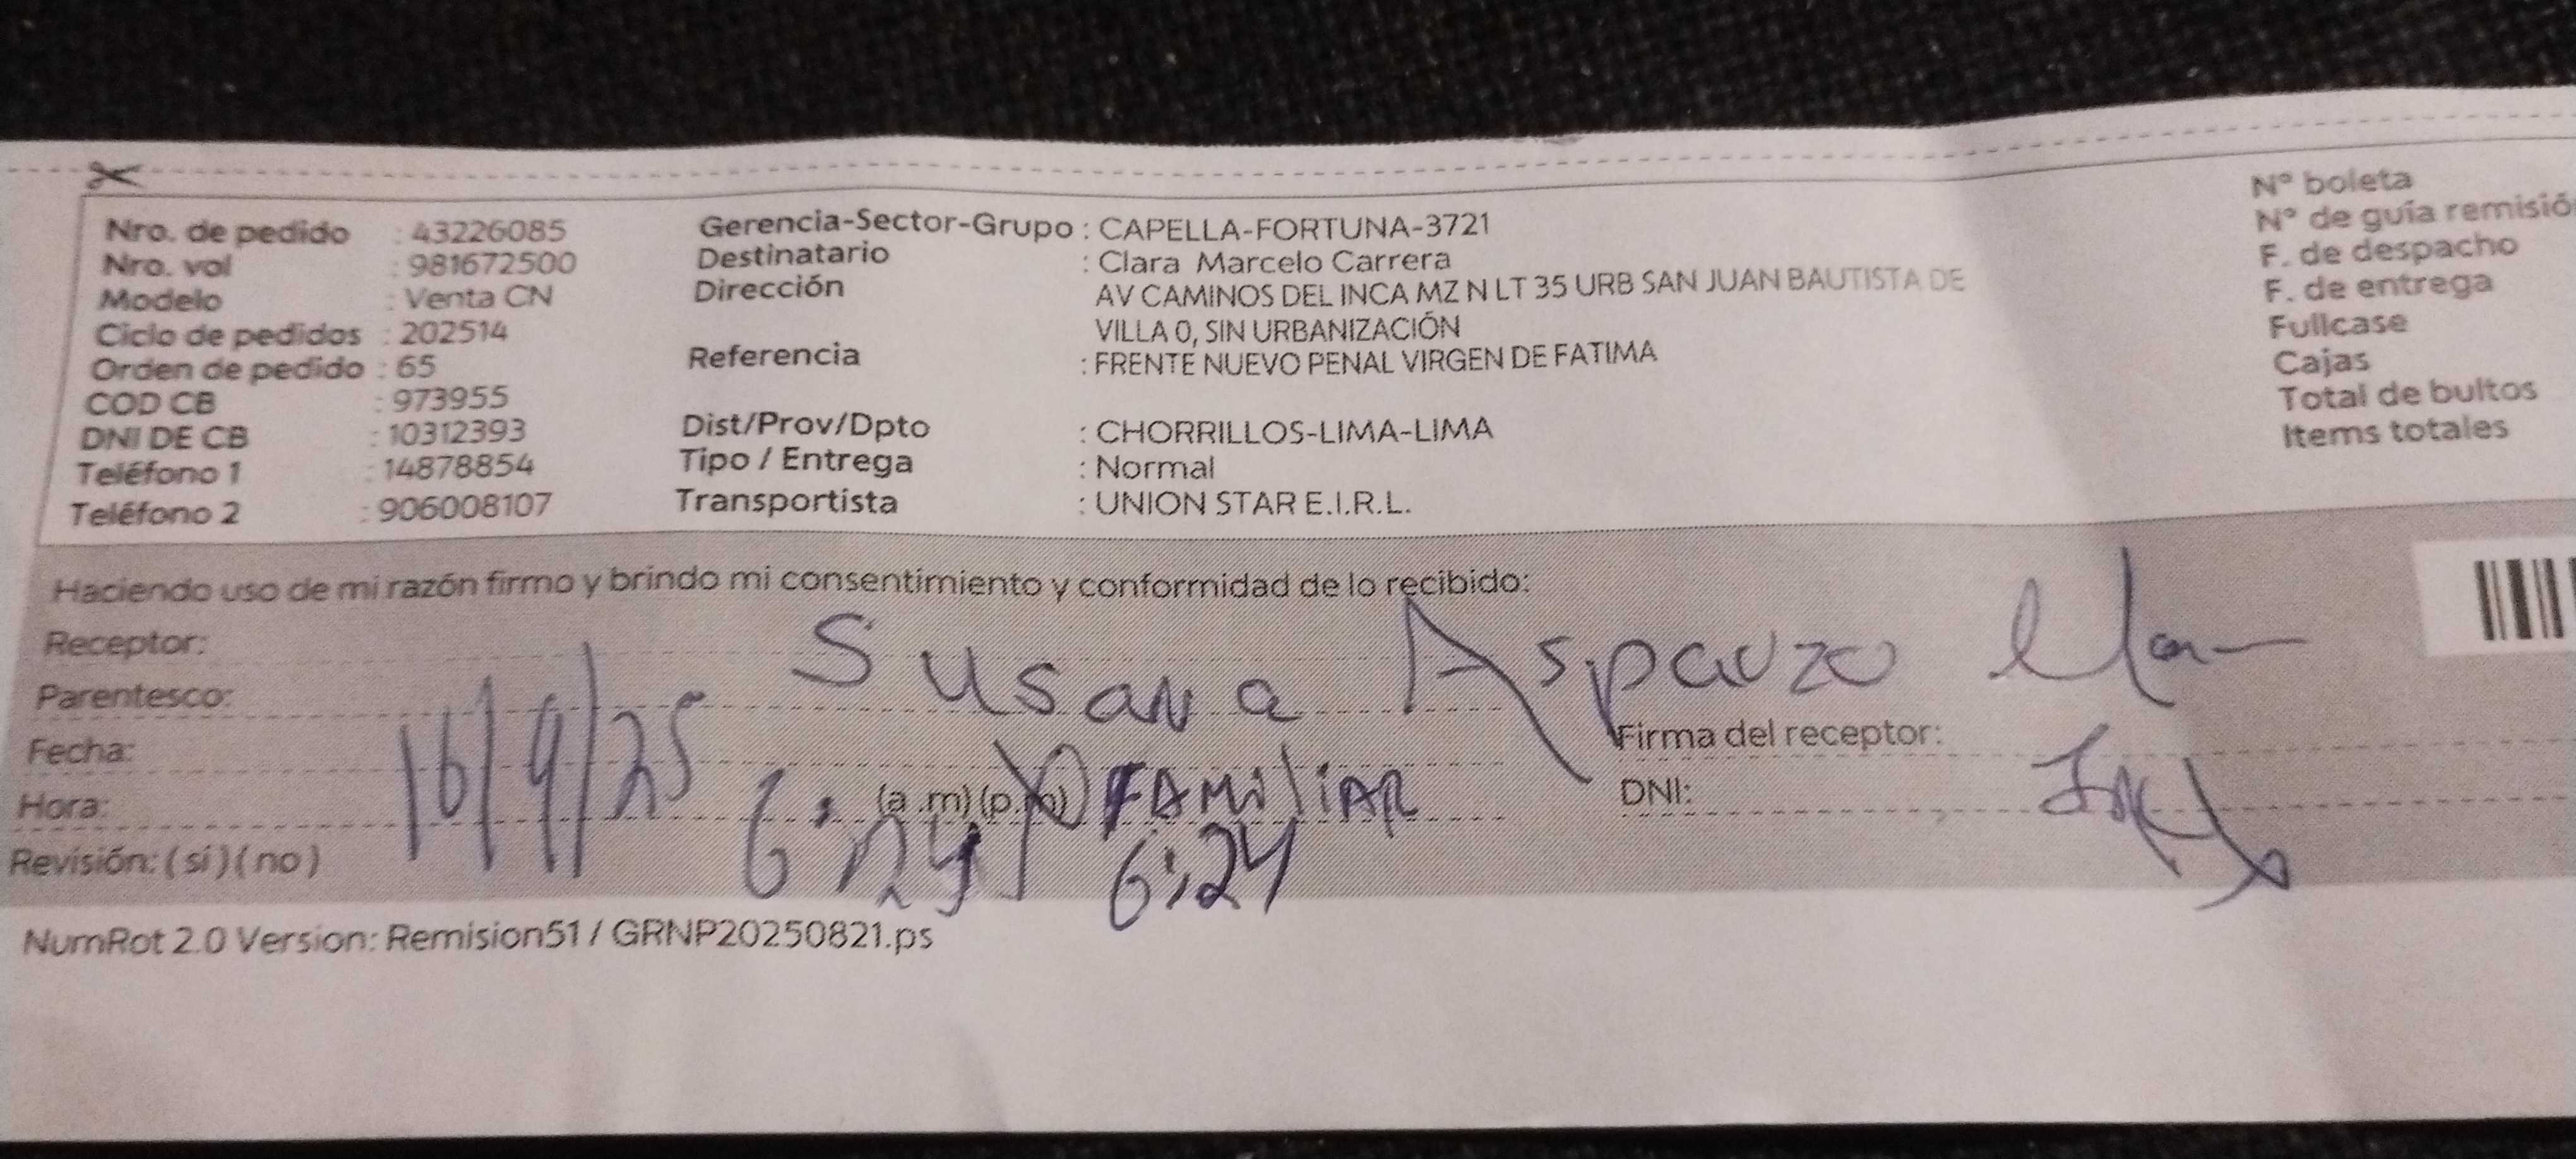 Nro. de pedido : 43226085
Nro. vol : 981672500
Modelo : Venta CN
Ciclo de pedidos : 202514
Orden de pedido : 65
COD CB : 973955
DNI DE CB : 10312393
Teléfono 1 : 14878854
Teléfono 2 : 906008107
Gerencia-Sector-Grupo : CAPELLA-FORTUNA-3721
Destinatario : Clara Marcelo Carrera
Dirección AV CAMINOS DEL INCA MZ N LT 35 URB SAN JUAN BAUTISTA DE
VILLA 0, SIN URBANIZACIÓN
Referencia : FRENTE NUEVO PENAL VIRGEN DE FATIMA
Dist/Prov/Dpto : CHORRILLOS-LIMA-LIMA
Tipo / Entrega : Normal
Transportista : UNION STAR E.I.R.L.
N° boleta
N° de guía remisió
F. de despacho
F. de entrega
Fullcase
Cajas
Total de bultos
Items totales
Haciendo uso de mi razón firmo y brindo mi consentimiento y conformidad de lo recibido:
Receptor: Susana
Parentesco:
Fecha: 16/9/25
Firma del receptor:
Hora: 6:24 (a.m) (p.m) FAMiliAR
DNI:
6:24
Revisión: ( si ) ( no )
NumRot 2.0 Version: Remision51 / GRNP20250821.ps